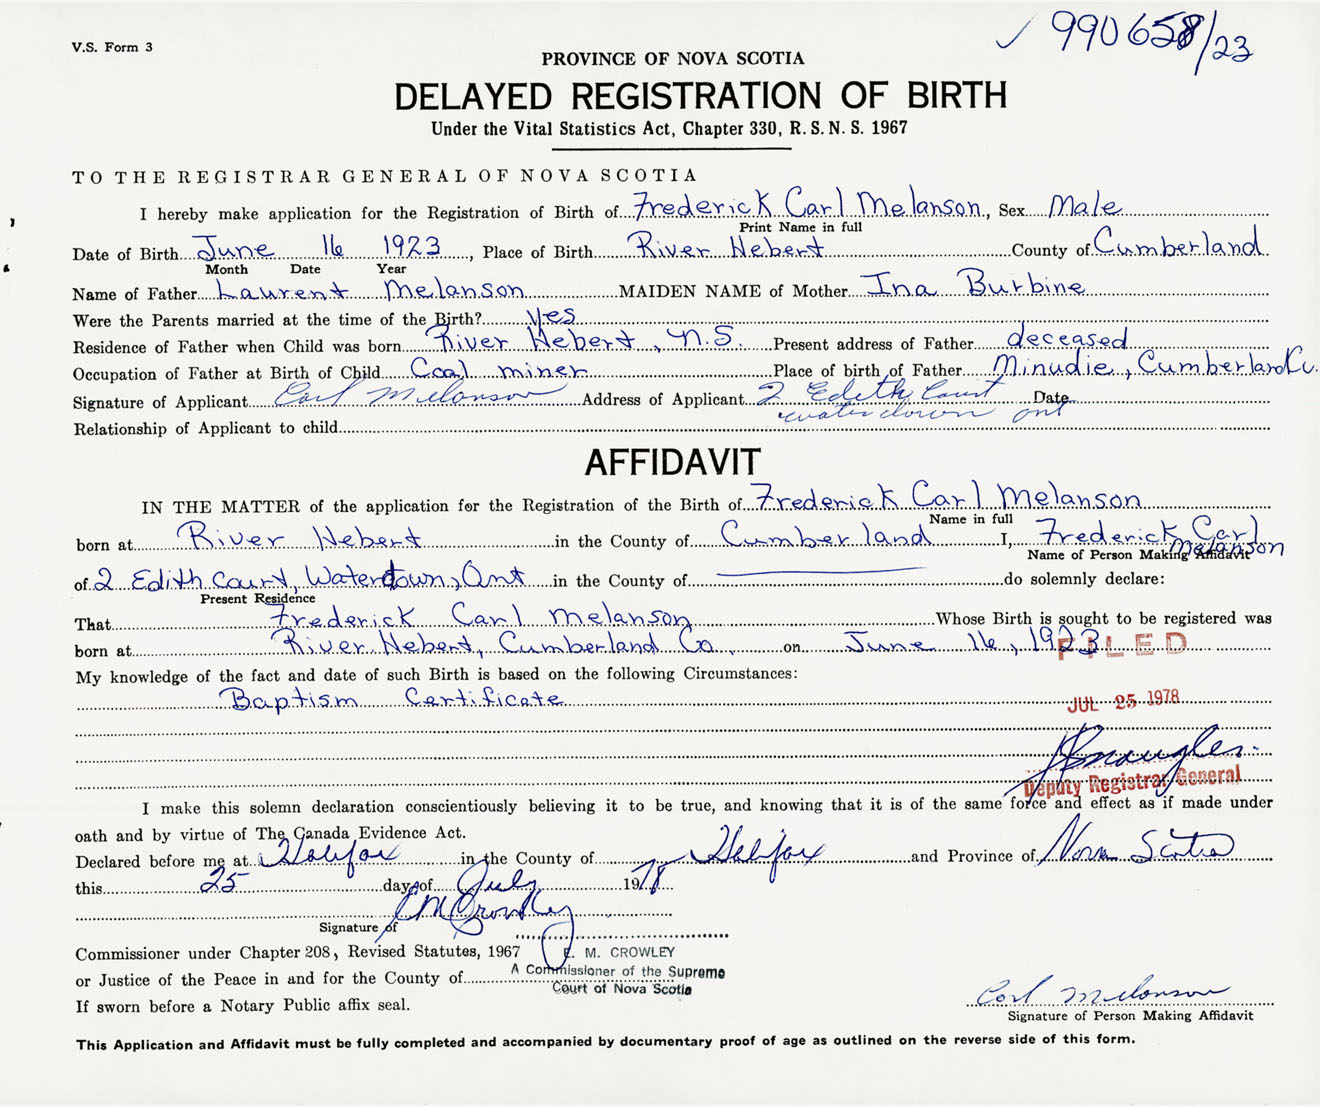 V.S. Form 3
✓ 990658/23
PROVINCE OF NOVA SCOTIA
DELAYED REGISTRATION OF BIRTH
Under the Vital Statistics Act, Chapter 330, R. S. N. S. 1967
TO THE REGISTRAR GENERAL OF NOVA SCOTIA
I hereby make application for the Registration of Birth of Frederick Carl Melanson, Sex Male
Print Name in full
Date of Birth June 16 1923, Place of Birth River Hebert County of Cumberland
Month Date Year
Name of Father Laurent Melanson MAIDEN NAME of Mother Ina Burbine
Were the Parents married at the time of the Birth? yes
Residence of Father when Child was born River Hebert, N.S. Present address of Father deceased
Occupation of Father at Birth of Child Coal miner Place of birth of Father Minudie, Cumberland Co.
Signature of Applicant Carl Melanson Address of Applicant 2 Edith Court Date
waterdown ont
Relationship of Applicant to child
AFFIDAVIT
IN THE MATTER of the application for the Registration of the Birth of Frederick Carl Melanson
Name in full
born at River Hebert in the County of Cumberland I, Frederick Carl
Melanson
Name of Person Making Affidavit
of 2 Edith Court, Waterdown, Ont in the County of do solemnly declare:
Present Residence
That Frederick Carl Melanson Whose Birth is sought to be registered was
born at River Hebert, Cumberland Co. on June 16, 1923
FILED
My knowledge of the fact and date of such Birth is based on the following Circumstances:
Baptism Certificate
JUL 25 1978
Deputy Registrar General
I make this solemn declaration conscientiously believing it to be true, and knowing that it is of the same force and effect as if made under
oath and by virtue of The Canada Evidence Act.
Declared before me at Halifax in the County of Halifax and Province of Nova Scotia
this 25 day of July 1978
EM Crowley
Signature of
Commissioner under Chapter 208, Revised Statutes, 1967
E. M. CROWLEY
or Justice of the Peace in and for the County of
A Commissioner of the Supreme
Court of Nova Scotia
If sworn before a Notary Public affix seal.
Carl Melanson
Signature of Person Making Affidavit
This Application and Affidavit must be fully completed and accompanied by documentary proof of age as outlined on the reverse side of this form.